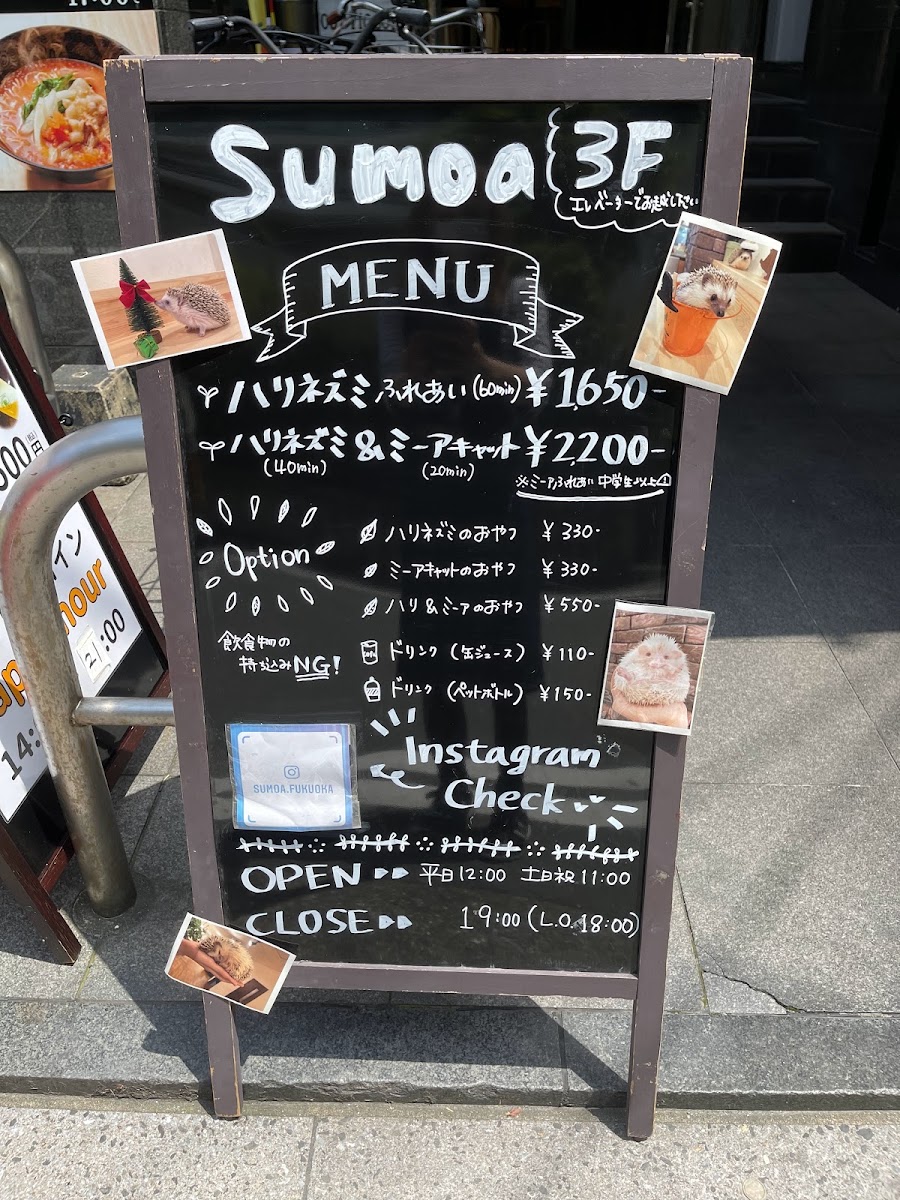 17:00
Sumoa 3F
エレベーターでお越し下さい
MENU
ハリネズミふれあい(60min) ¥1,650-
ハリネズミ&ミーアキャット ¥2,200-
(40min) (20min)
※ミーアふれあい中学生以上
Option
ハリネズミのおやつ ¥330-
ミーアキャットのおやつ ¥330-
ハリ&ミーアのおやつ ¥550-
飲食物の
持ち込みNG!
ドリンク (缶ジュース) ¥110-
ドリンク (ペットボトル) ¥150-
Instagram
Check
SUMOA.FUKUOKA
OPEN 平日12:00 土日祝11:00
CLOSE 19:00 (L.O.18:00)
00円
(税込)
イン
hour
14:
21:00